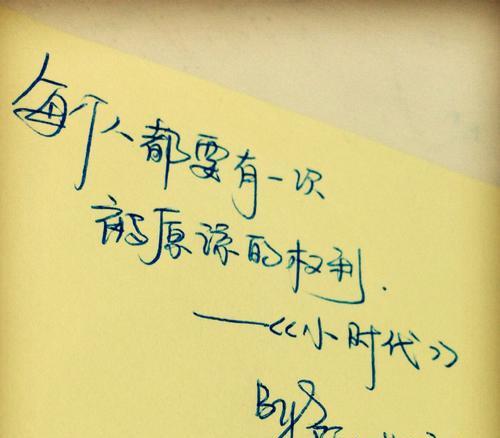 每个人都要有一次
被原谅的权利.
——《小时代》
By